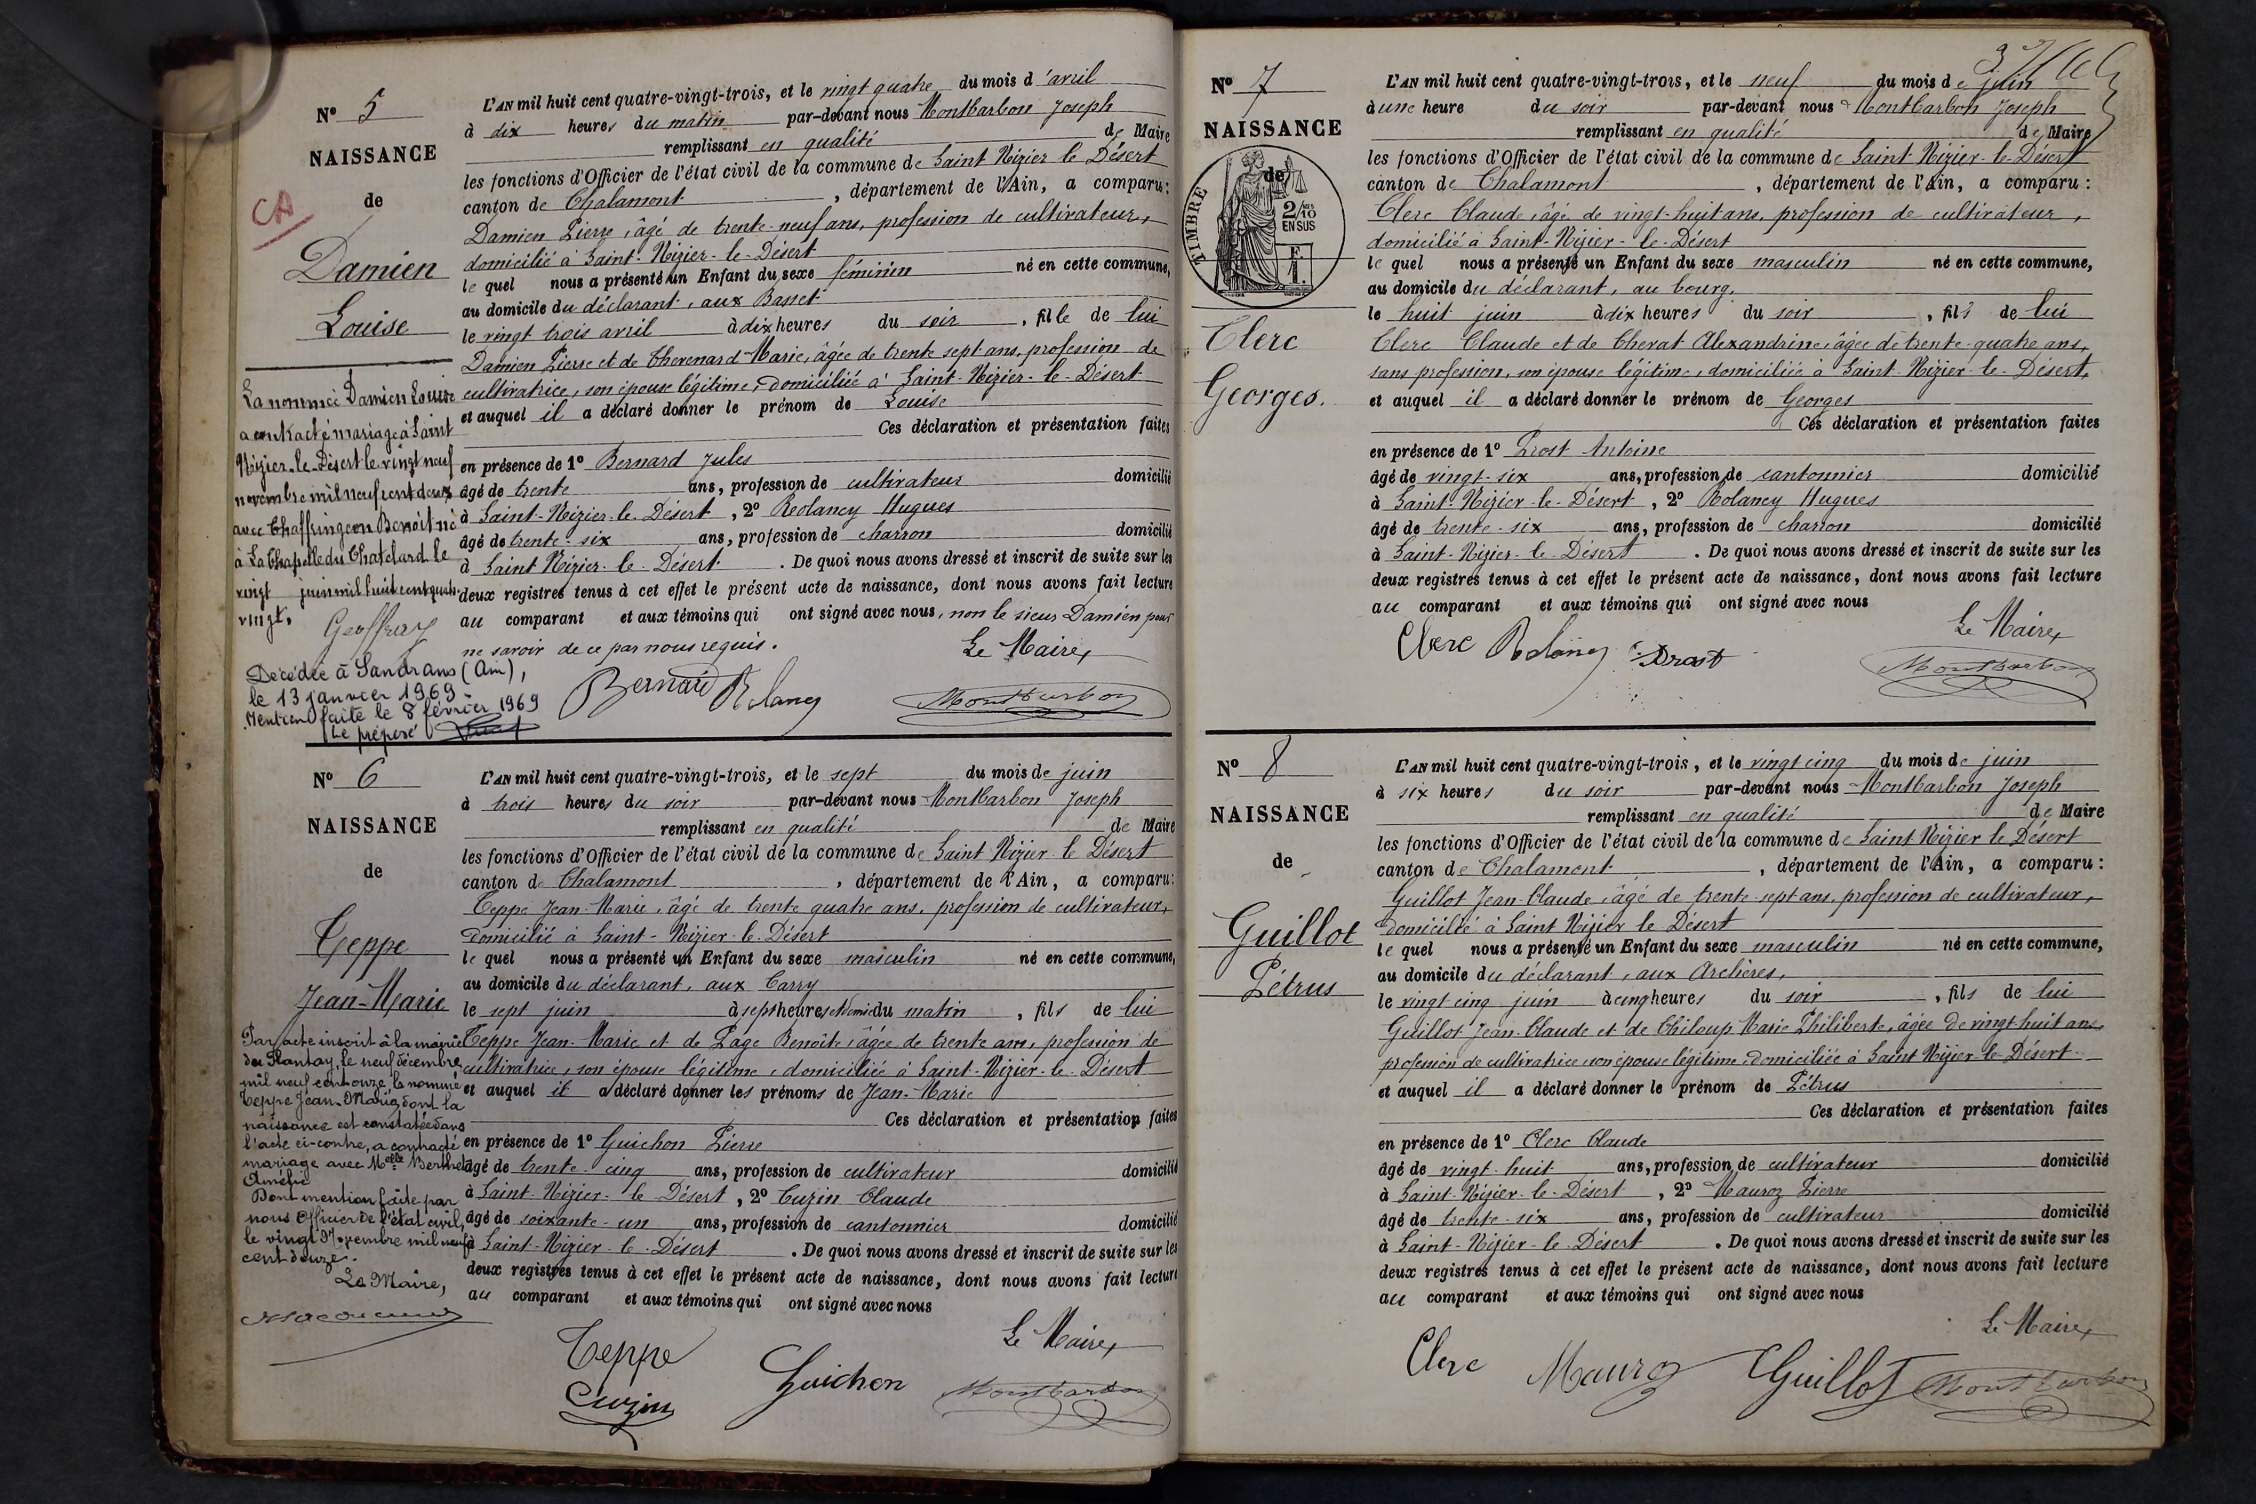 Nº 5
NAISSANCE
de
CA
Damien
Louise
La nommée Damien Louise
a contracté mariage à Saint
Nizier-le-Désert le vingt neuf
novembre mil neuf cent deux
avec Chaffringeon Benoît né
à La Chapelle du Chatelard le
vingt juin mil huit cent quatre
vingt.
Geoffray
Décédée à Sandrans (Ain),
le 13 janvier 1969.
Mention faite le 8 février 1969
Le préposé
L'AN mil huit cent quatre-vingt-trois, et le vingt quatre du mois d'avril
à dix heures du matin par-devant nous Montbarbon Joseph
remplissant en qualité de Maire
les fonctions d'Officier de l'état civil de la commune de Saint Nizier le Désert
canton de Chalamont, département de l'Ain, a comparu:
Damien Pierre, âgé de trente-neuf ans, profession de cultivateur,
domicilié à Saint-Nizier-le-Désert
le quel nous a présenté un Enfant du sexe féminin né en cette commune,
au domicile du déclarant, aux Basset
le vingt trois avril à dix heures du soir, fille de lui
Damien Pierre et de Chevenard Marie, âgée de trente sept ans, profession de
cultivatrice, son épouse légitime, domiciliée à Saint-Nizier-le-Désert
et auquel il a déclaré donner le prénom de Louise
Ces déclaration et présentation faites
en présence de 1º Bernard Jules
âgé de trente ans, profession de cultivateur domicilié
à Saint-Nizier-le-Désert, 2º Rolancy Hugues
âgé de trente-six ans, profession de charron domicilié
à Saint Nizier-le-Désert. De quoi nous avons dressé et inscrit de suite sur les
deux registres tenus à cet effet le présent acte de naissance, dont nous avons fait lecture
au comparant et aux témoins qui ont signé avec nous, non le sieur Damien pour
ne savoir de ce par nous requis.
Le Maire,
Bernard Rolancy Montbarbon
Nº 6
NAISSANCE
de
Teppe
Jean-Marie
Par acte inscrit à la mairie
du Plantay, le neuf décembre
mil neuf cent onze, le nommé
Teppe Jean-Marie, dont la
naissance est constatée dans
l'acte ci-contre, a contracté
mariage avec Melle Berthet
Amélie
Dont mention faite par
nous Officier de l'état civil,
le vingt Novembre mil neuf
cent douze.
Le Maire,
L'AN mil huit cent quatre-vingt-trois, et le sept du mois de juin
à trois heures du soir par-devant nous Montbarbon Joseph
remplissant en qualité de Maire
les fonctions d'Officier de l'état civil de la commune de Saint Nizier le Désert
canton de Chalamont, département de l'Ain, a comparu:
Teppe Jean-Marie, âgé de trente quatre ans, profession de cultivateur,
domicilié à Saint-Nizier-le-Désert
le quel nous a présenté un Enfant du sexe masculin né en cette commune,
au domicile du déclarant, aux Carry
le sept juin à sept heures et demie du matin, fils de lui
Teppe Jean-Marie et de Page Benoîte, âgée de trente ans, profession de
cultivatrice, son épouse légitime, domiciliée à Saint-Nizier-le-Désert
et auquel il a déclaré donner les prénoms de Jean-Marie
Ces déclaration et présentation faites
en présence de 1º Guichon Pierre
âgé de trente-cinq ans, profession de cultivateur domicilié
à Saint-Nizier-le-Désert, 2º Cuzin Claude
âgé de soixante-un ans, profession de cantonnier domicilié
à Saint-Nizier-le-Désert. De quoi nous avons dressé et inscrit de suite sur les
deux registres tenus à cet effet le présent acte de naissance, dont nous avons fait lecture
au comparant et aux témoins qui ont signé avec nous
Le Maire,
Teppe Guichon Montbarbon
Cuzin
Nº 7
NAISSANCE
de
TIMBRE
2/10
EN SUS
F.
1.
Clerc
Georges.
L'AN mil huit cent quatre-vingt-trois, et le neuf du mois de juin
à une heure du soir par-devant nous Montbarbon Joseph
remplissant en qualité de Maire
les fonctions d'Officier de l'état civil de la commune de Saint-Nizier-le-Désert
canton de Chalamont, département de l'Ain, a comparu:
Clerc Claude, âgé de vingt-huit ans, profession de cultivateur,
domicilié à Saint-Nizier-le-Désert
le quel nous a présenté un Enfant du sexe masculin né en cette commune,
au domicile du déclarant, au bourg,
le huit juin à dix heures du soir, fils de lui
Clerc Claude et de Cherat Alexandrine, âgée de trente-quatre ans,
sans profession, son épouse légitime, domiciliée à Saint-Nizier-le-Désert,
et auquel il a déclaré donner le prénom de Georges
Ces déclaration et présentation faites
en présence de 1º Prost Antoine
âgé de vingt-six ans, profession de cantonnier domicilié
à Saint-Nizier-le-Désert, 2º Rolancy Hugues
âgé de trente-six ans, profession de charron domicilié
à Saint-Nizier-le-Désert. De quoi nous avons dressé et inscrit de suite sur les
deux registres tenus à cet effet le présent acte de naissance, dont nous avons fait lecture
au comparant et aux témoins qui ont signé avec nous
Le Maire,
Clerc Rolancy Prost Montbarbon
Nº 8
NAISSANCE
de
Guillot
Pétrus
L'AN mil huit cent quatre-vingt-trois, et le vingt cinq du mois de juin
à six heures du soir par-devant nous Montbarbon Joseph
remplissant en qualité de Maire
les fonctions d'Officier de l'état civil de la commune de Saint Nizier le Désert
canton de Chalamont, département de l'Ain, a comparu:
Guillot Jean-Claude, âgé de trente-sept ans, profession de cultivateur,
domicilié à Saint Nizier le Désert
le quel nous a présenté un Enfant du sexe masculin né en cette commune,
au domicile du déclarant, aux Archères,
le vingt cinq juin à cinq heures du soir, fils de lui
Guillot Jean-Claude et de Chiloup Marie Philiberte, âgée de vingt huit ans,
profession de cultivatrice, son épouse légitime, domiciliée à Saint Nizier-le-Désert
et auquel il a déclaré donner le prénom de Pétrus
Ces déclaration et présentation faites
en présence de 1º Clerc Claude
âgé de vingt-huit ans, profession de cultivateur domicilié
à Saint-Nizier-le-Désert, 2º Mauroz Pierre
âgé de trente-six ans, profession de cultivateur domicilié
à Saint-Nizier-le-Désert. De quoi nous avons dressé et inscrit de suite sur les
deux registres tenus à cet effet le présent acte de naissance, dont nous avons fait lecture
au comparant et aux témoins qui ont signé avec nous
Le Maire,
Clerc Mauroz Guillot Montbarbon